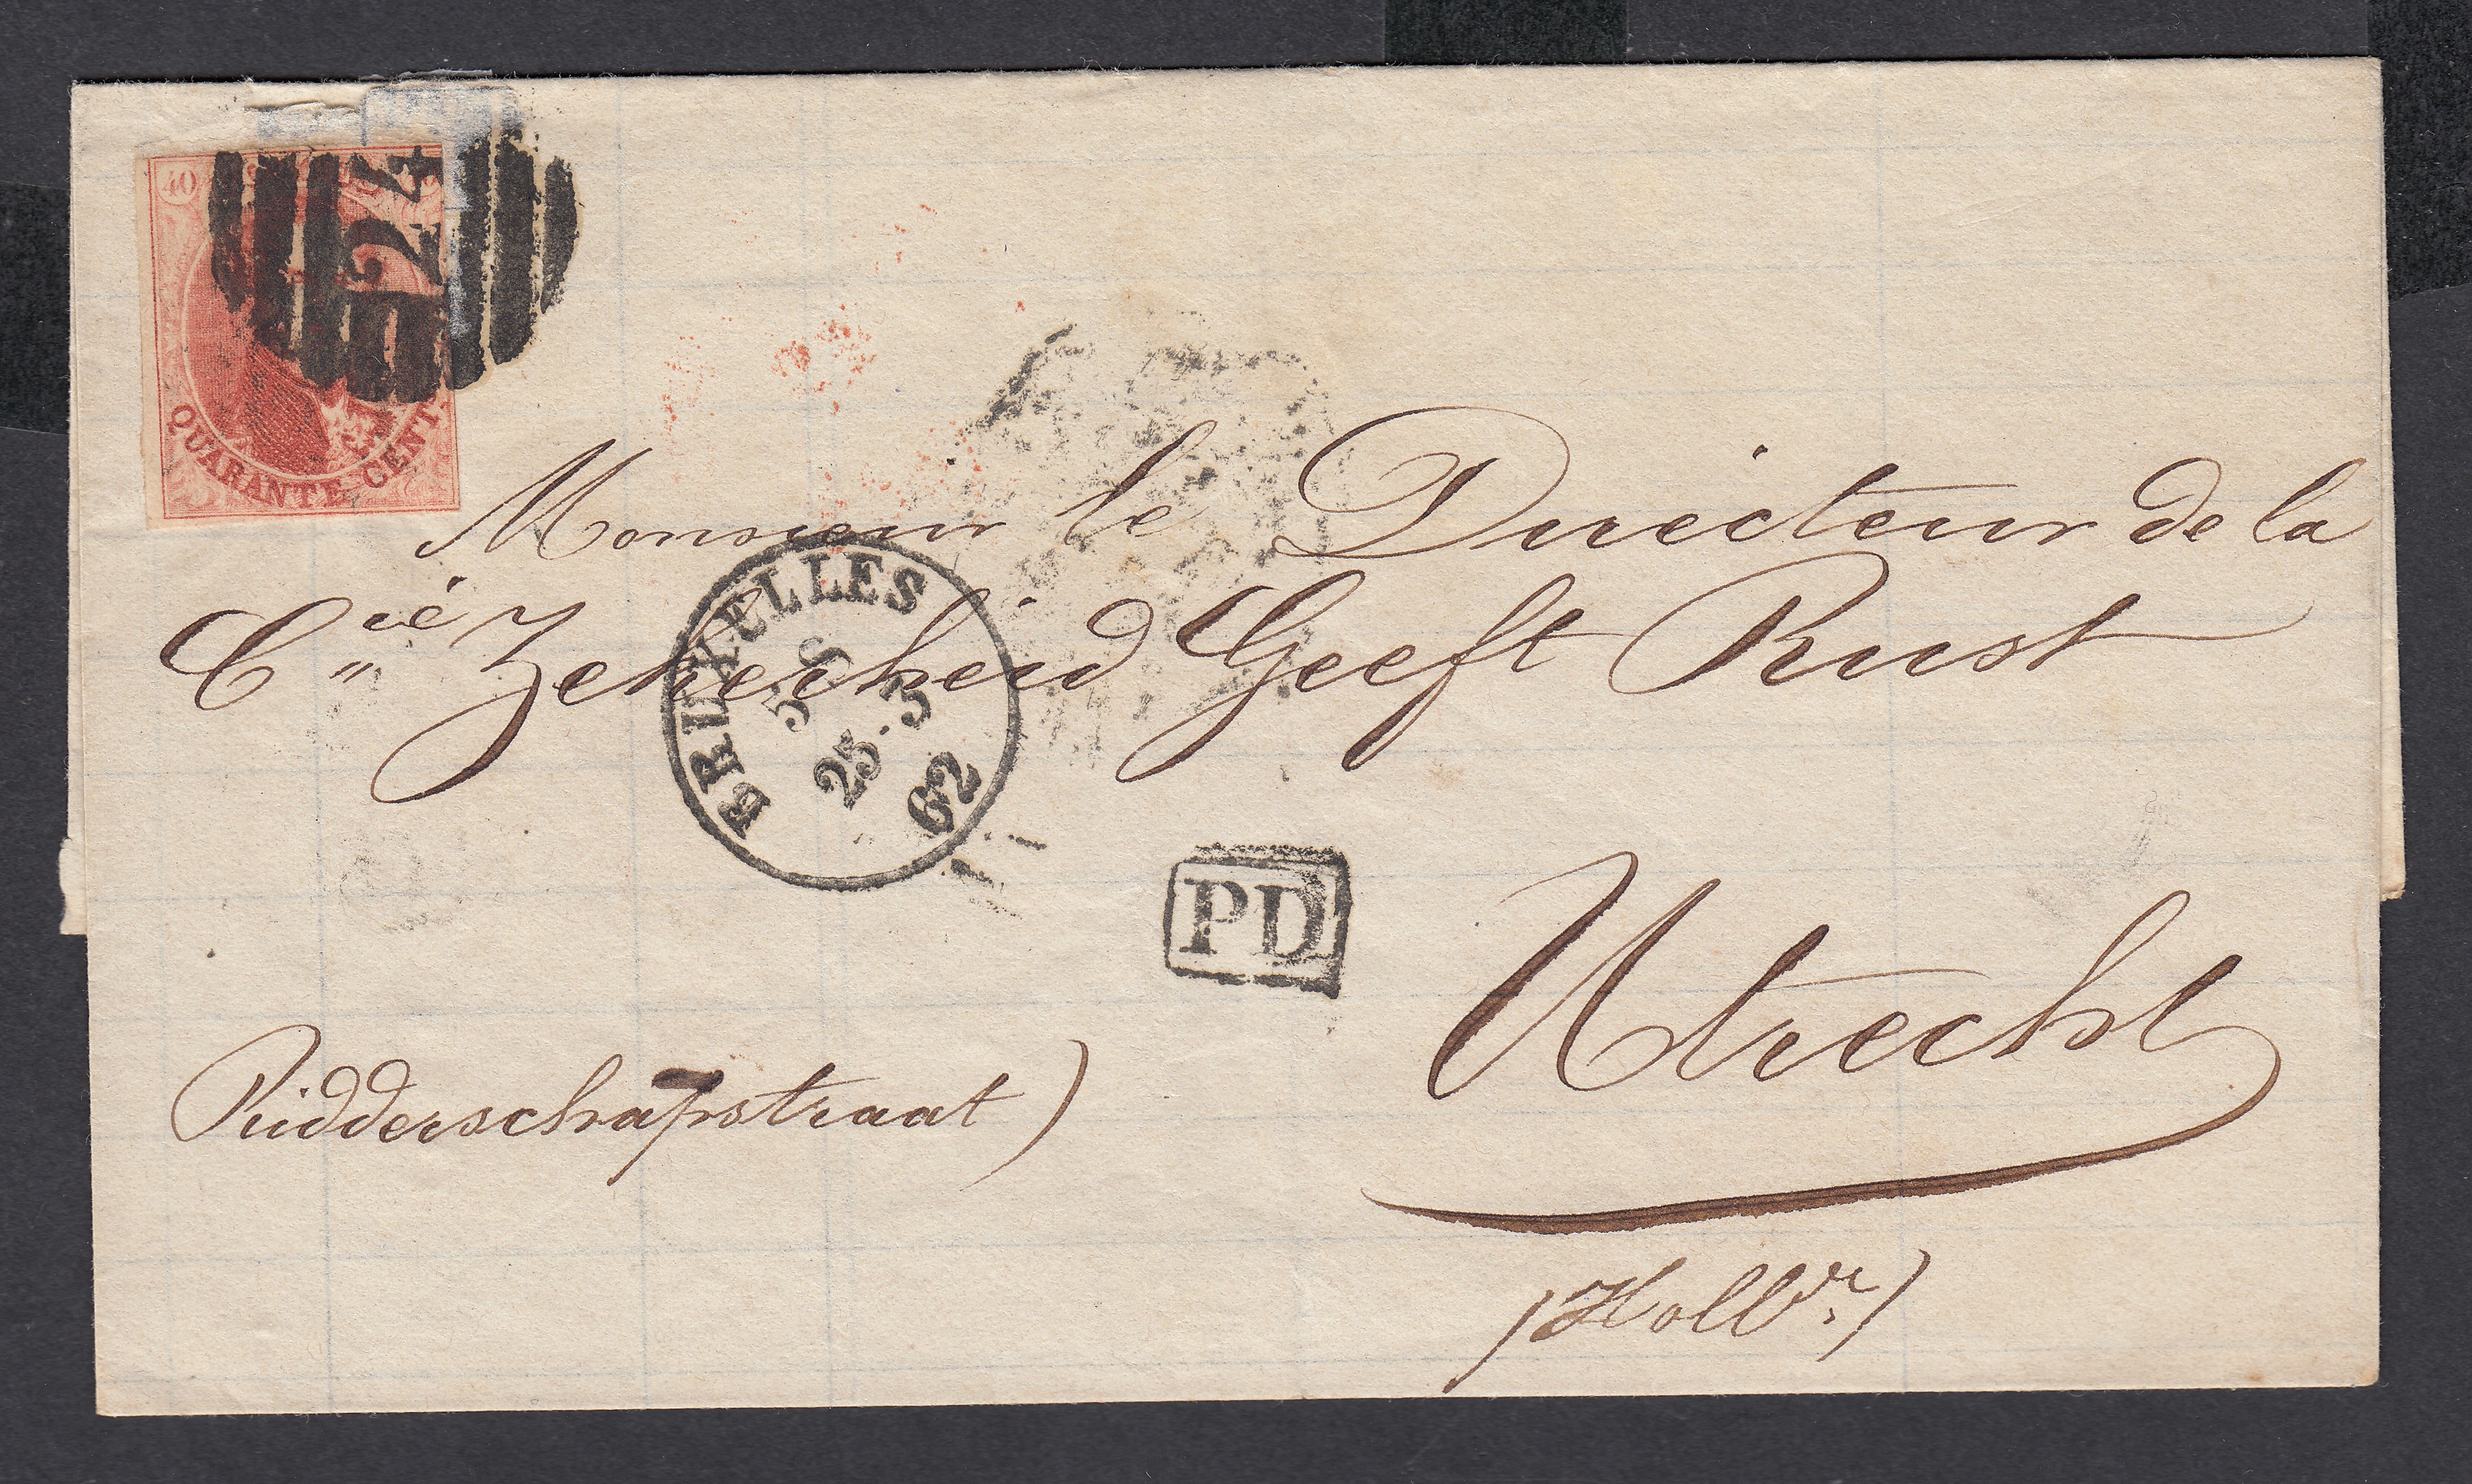 40
24
QUARANTE CENT
Monsieur le Directeur de la
Cie Zekerheid Geeft Rust
BRUXELLES
5 S
25·3
62
PD
Utrecht
Ridderschapstraat)